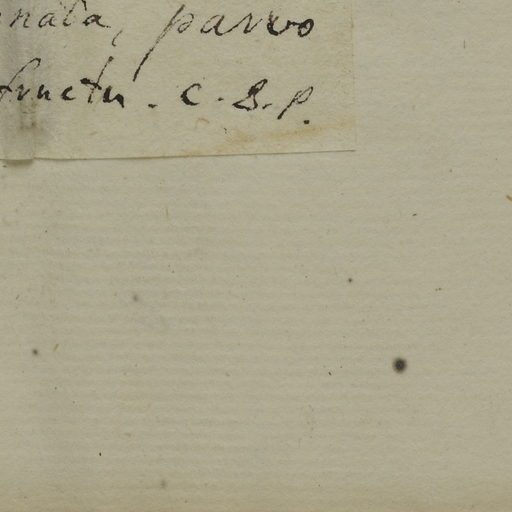 nata, parvo
fructu. C. B. P.